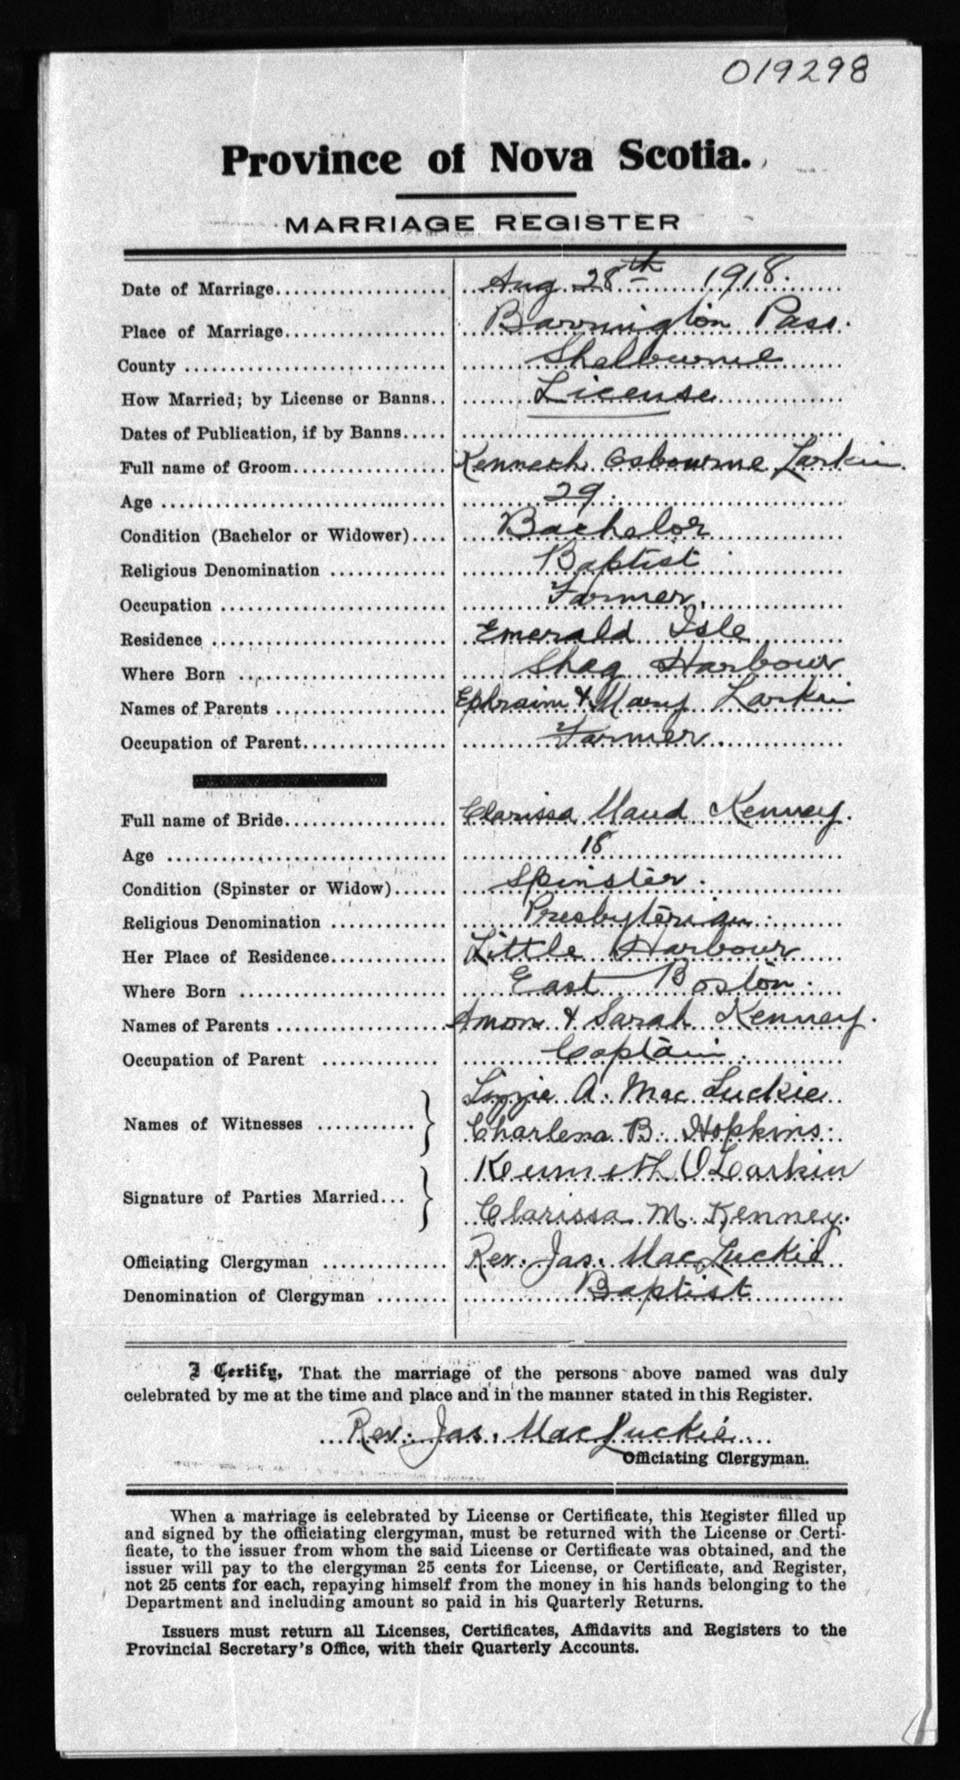 019298
Province of Nova Scotia.
MARRIAGE REGISTER
Date of Marriage.................... Aug 28th 1918.
Place of Marriage................... Barrington Pass.
County ............................. Shelburne
How Married; by License or Banns.. License
Dates of Publication, if by Banns.....
Full name of Groom.................. Kenneth Osbourne Larkin.
Age ................................ 29.
Condition (Bachelor or Widower).... Bachelor
Religious Denomination ............. Baptist
Occupation ......................... Farmer.
Residence .......................... Emerald Isle
Where Born ......................... Shag Harbour
Names of Parents ................... Ephraim & Mary Larkin
Occupation of Parent................ Farmer.
Full name of Bride.................. Clarissa Maud Kenney.
Age ................................ 18
Condition (Spinster or Widow)...... Spinster.
Religious Denomination ............. Presbyterian.
Her Place of Residence............. Little Harbour
Where Born ......................... East Boston.
Names of Parents ................... Amon & Sarah Kenney.
Occupation of Parent ............... Captain.
Lizzie A. MacLuckie
Names of Witnesses ........... } Charlena B. Hopkins.
Kenneth O Larkin
Signature of Parties Married... } Clarissa M. Kenney.
Officiating Clergyman .............. Rev. Jas. MacLuckie
Denomination of Clergyman ........ Baptist
I Certify, That the marriage of the persons above named was duly
celebrated by me at the time and place and in the manner stated in this Register.
Rev. Jas. MacLuckie
Officiating Clergyman.
When a marriage is celebrated by License or Certificate, this Register filled up
and signed by the officiating clergyman, must be returned with the License or Certi-
ficate, to the issuer from whom the said License or Certificate was obtained, and the
issuer will pay to the clergyman 25 cents for License, or Certificate, and Register,
not 25 cents for each, repaying himself from the money in his hands belonging to the
Department and including amount so paid in his Quarterly Returns.
Issuers must return all Licenses, Certificates, Affidavits and Registers to the
Provincial Secretary's Office, with their Quarterly Accounts.